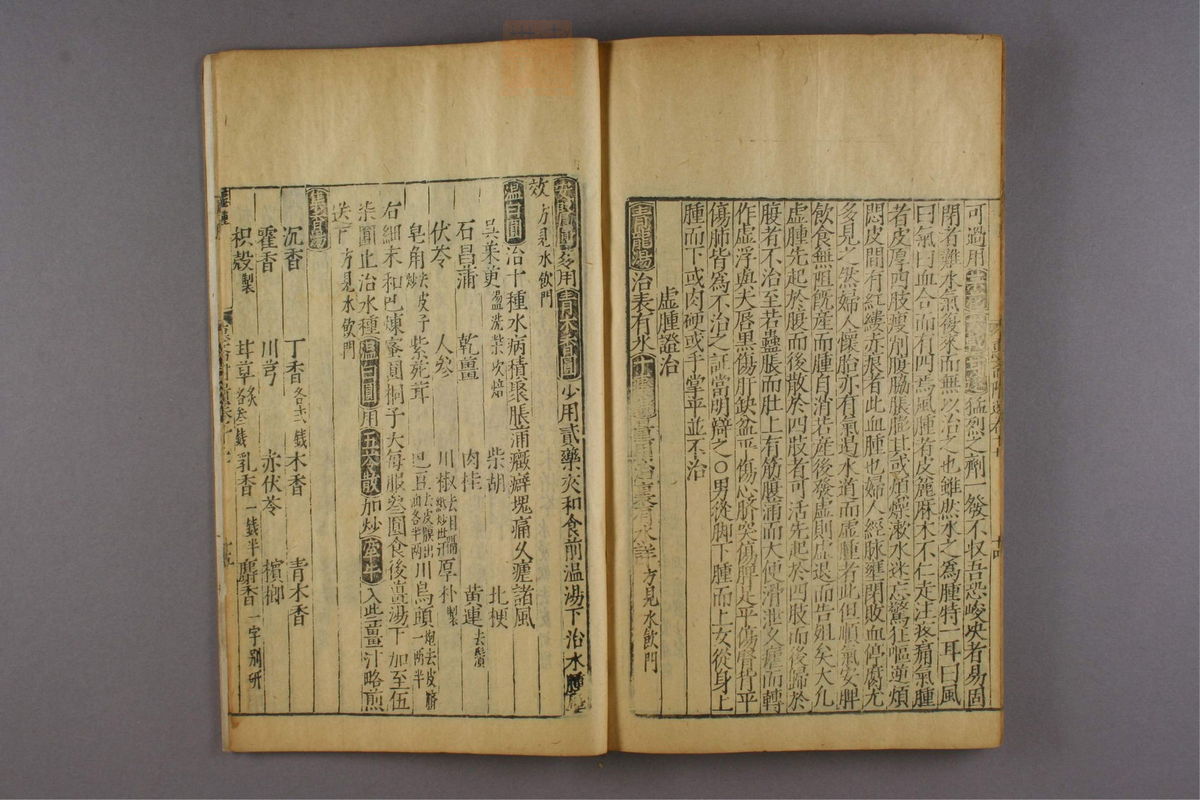 可過用
猛烈之劑一發不收吾恐峻決者易固
閉者難水氣後來而無以治之也雖然水之為腫特一耳曰風
曰氣曰血合而有門焉風腫者皮麄麻木不仁走注疼痛氣腫
者皮厚四肢瘦削腹脇脹膨其或煩燥漱水迷忘驚狂嘔逆煩
悶皮間有紅縷赤痕者此血腫也婦人經脉壅閉敗血停腐尤
多見之然婦人懷胎亦有氣遏水道而虛腫者此但順氣安脾
飲食無阻既產而腫自消若産後發虛則
而告殂矣大凡
虛腫先起於腹而後散於四肢者可活先起於四肢而後歸於
腹者不治至若蠱脹而肚上有筋腹滿而大便滑泄久瘧而轉
作虛浮與夫唇黒傷肝缺盆平傷心臍突傷脾足平傷腎背平
傷肺皆為不治之証當明辯之〇男從脚下腫而上女從身上
腫而下或肉硬或手掌平並不治
虛腫證治
青龍湯治表有水
方見水飲門
多用青木香圓少用貳藥夾和食前温湯下治水腫
效方見水飲門
温白圓治十種水病積聚脹滿癥癖塊痛久瘧諸風
吳茱萸 湯洗柒次焙 柴胡 北梗
石昌蒲 乾薑 肉桂 黄連去鬚
伏苓 人參 川椒 厚朴製
皂角去皮子炒 紫菀茸 巴豆 川烏頭炮去皮臍一兩半
右細末和巴煉蜜圓桐子大每服叁圓食後薑湯下加至伍
柒圓止治水種温白圓用五苓散加炒牽牛入些薑汁略煎
送下方見水飲門
集香湯
沉香 丁香 木香 青木香
霍香 川芎 赤伏苓 檳榔
枳殼製 甘草 乳香一錢半 麝香一字別研